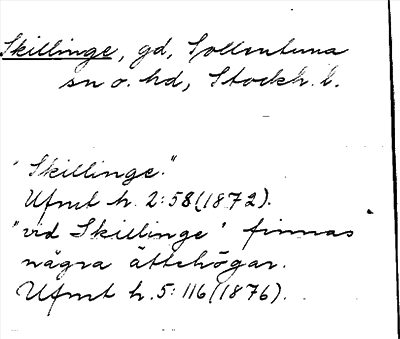 Skillinge, gd, Sollentuna
sn o. hd, Stockh. l.
"Skillinge."
Ufmt h. 2:58(1872).
"vid Skillinge" finnas
några ättehögar.
Ufmt h. 5:116(1876).